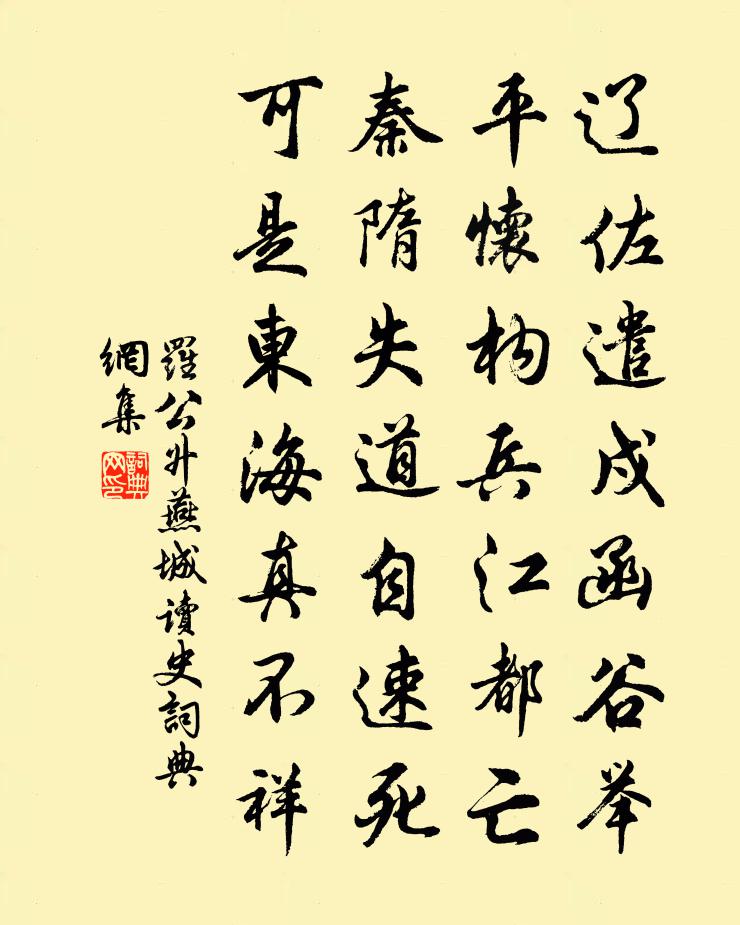 辽佐遣戍函谷举
平懷构兵江都亡
秦隋失道自速死
可是東海真不祥
羅公升燕城讀史詞典
網集
詞典
网印